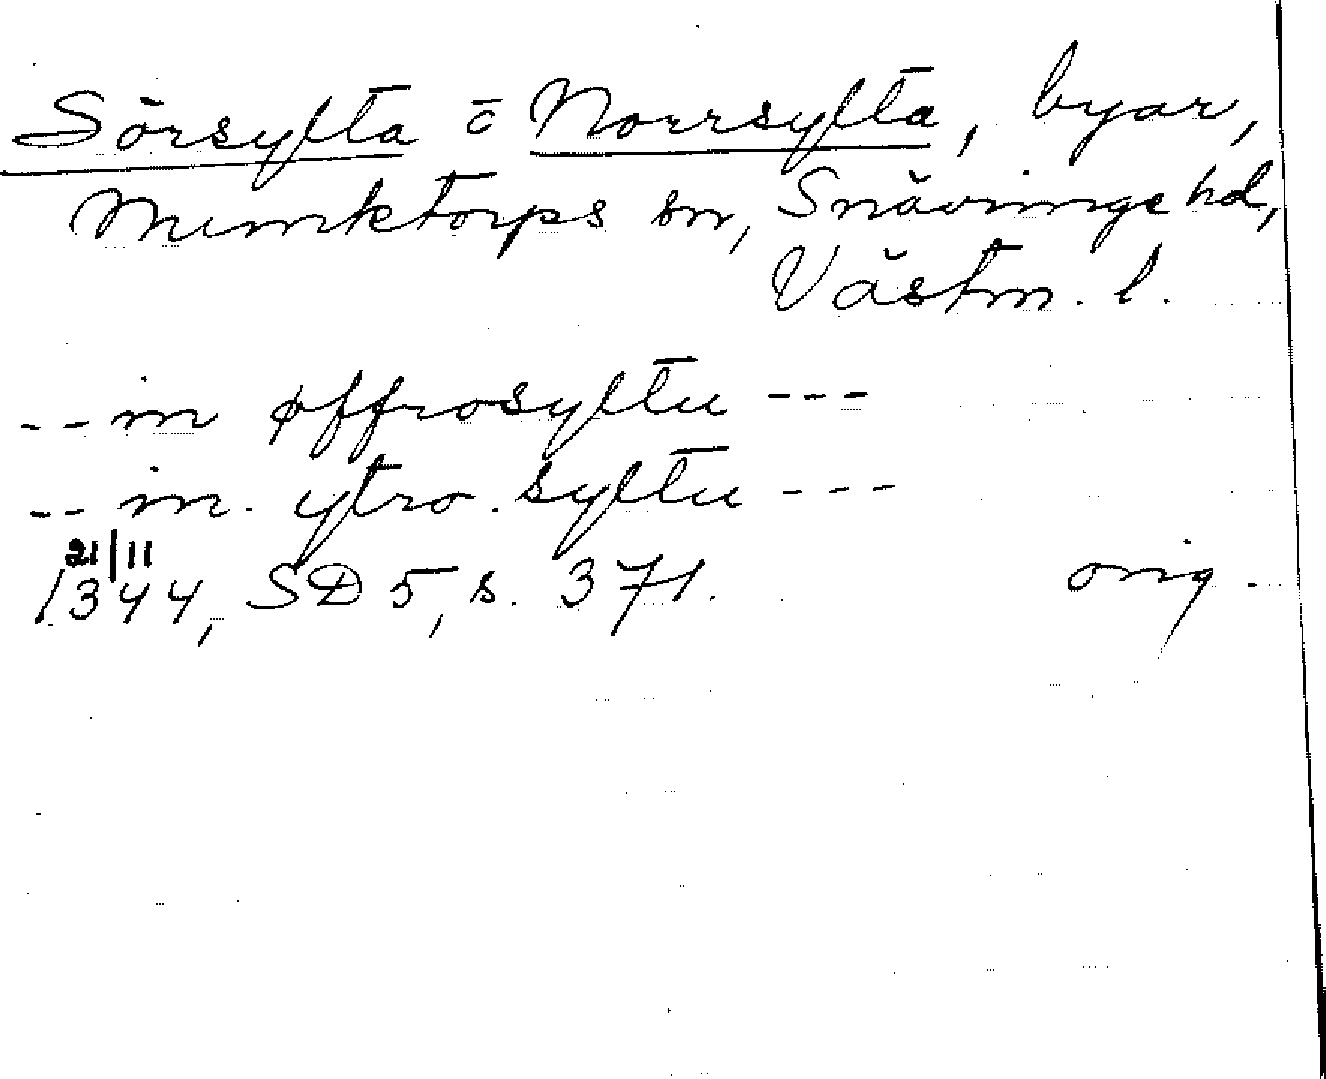 Sörsylta o Norrsylta, byar,
Munktorps sn, Snävringe hd,
Västm. l.
-- in øffrosyltu ---
-- in. ytro. syltu ---
21/11
1344, SD 5, s. 371. orig.